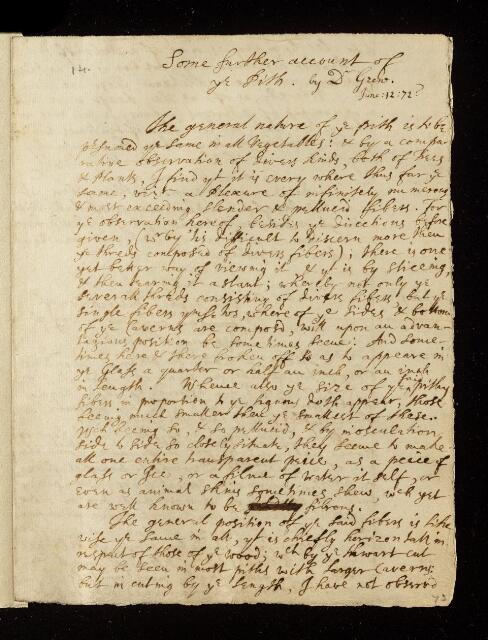 14.
Some further account of
ye Pith. by Dr Grew.
June: 12: 72
The general nature of ye pith is to be
presumed ye same in all Vegetables: & by a compa-
rative observation of divers kinds, both of Trees
& Plants, I find yt it is every where thus far ye
same, a plexure of infinitely numerous
& most exceeding slender & pellucid fibers. For
ye observation hereof, besides ye directions before
given, (wrby tis difficult to discern more then
ye threds composed of divers fibers); there is one
yet better way of viewing it & yt is by sliceing,
& then tearing it aslant; whereby not only ye
severall threds consisting of divers fibers but ye
single fibers ymselves, where of ye sides & bottom
of ye caverns are composed, will upon an advan-
tagious position be sometimes seene: And some-
times here & there broken off so as to appeare in
ye Glass a quarter or half an inch, or an inch
in length. Whence also ye size of ye pithy
fibers in proportion to ye lignous doth appear, those
being much smaller then ye smallest of these.
Wch being so, & so pellucid, & by inosculation,
side to side so closely situate, they seeme to made
all one entire transparent peice, as a peice of
glass or Ice, or a filme of water it self, or
even as animal skins sometimes shew, wch yet
are well known to be fibrous.
The general position of ye said fibers is like
wise ye same in all, yt is chiefly horizontall in
respect of those of ye wood; wch by ye thwart cut
may be seen in most piths with larger Caverns:
but in cuting by ye length, I have not observd